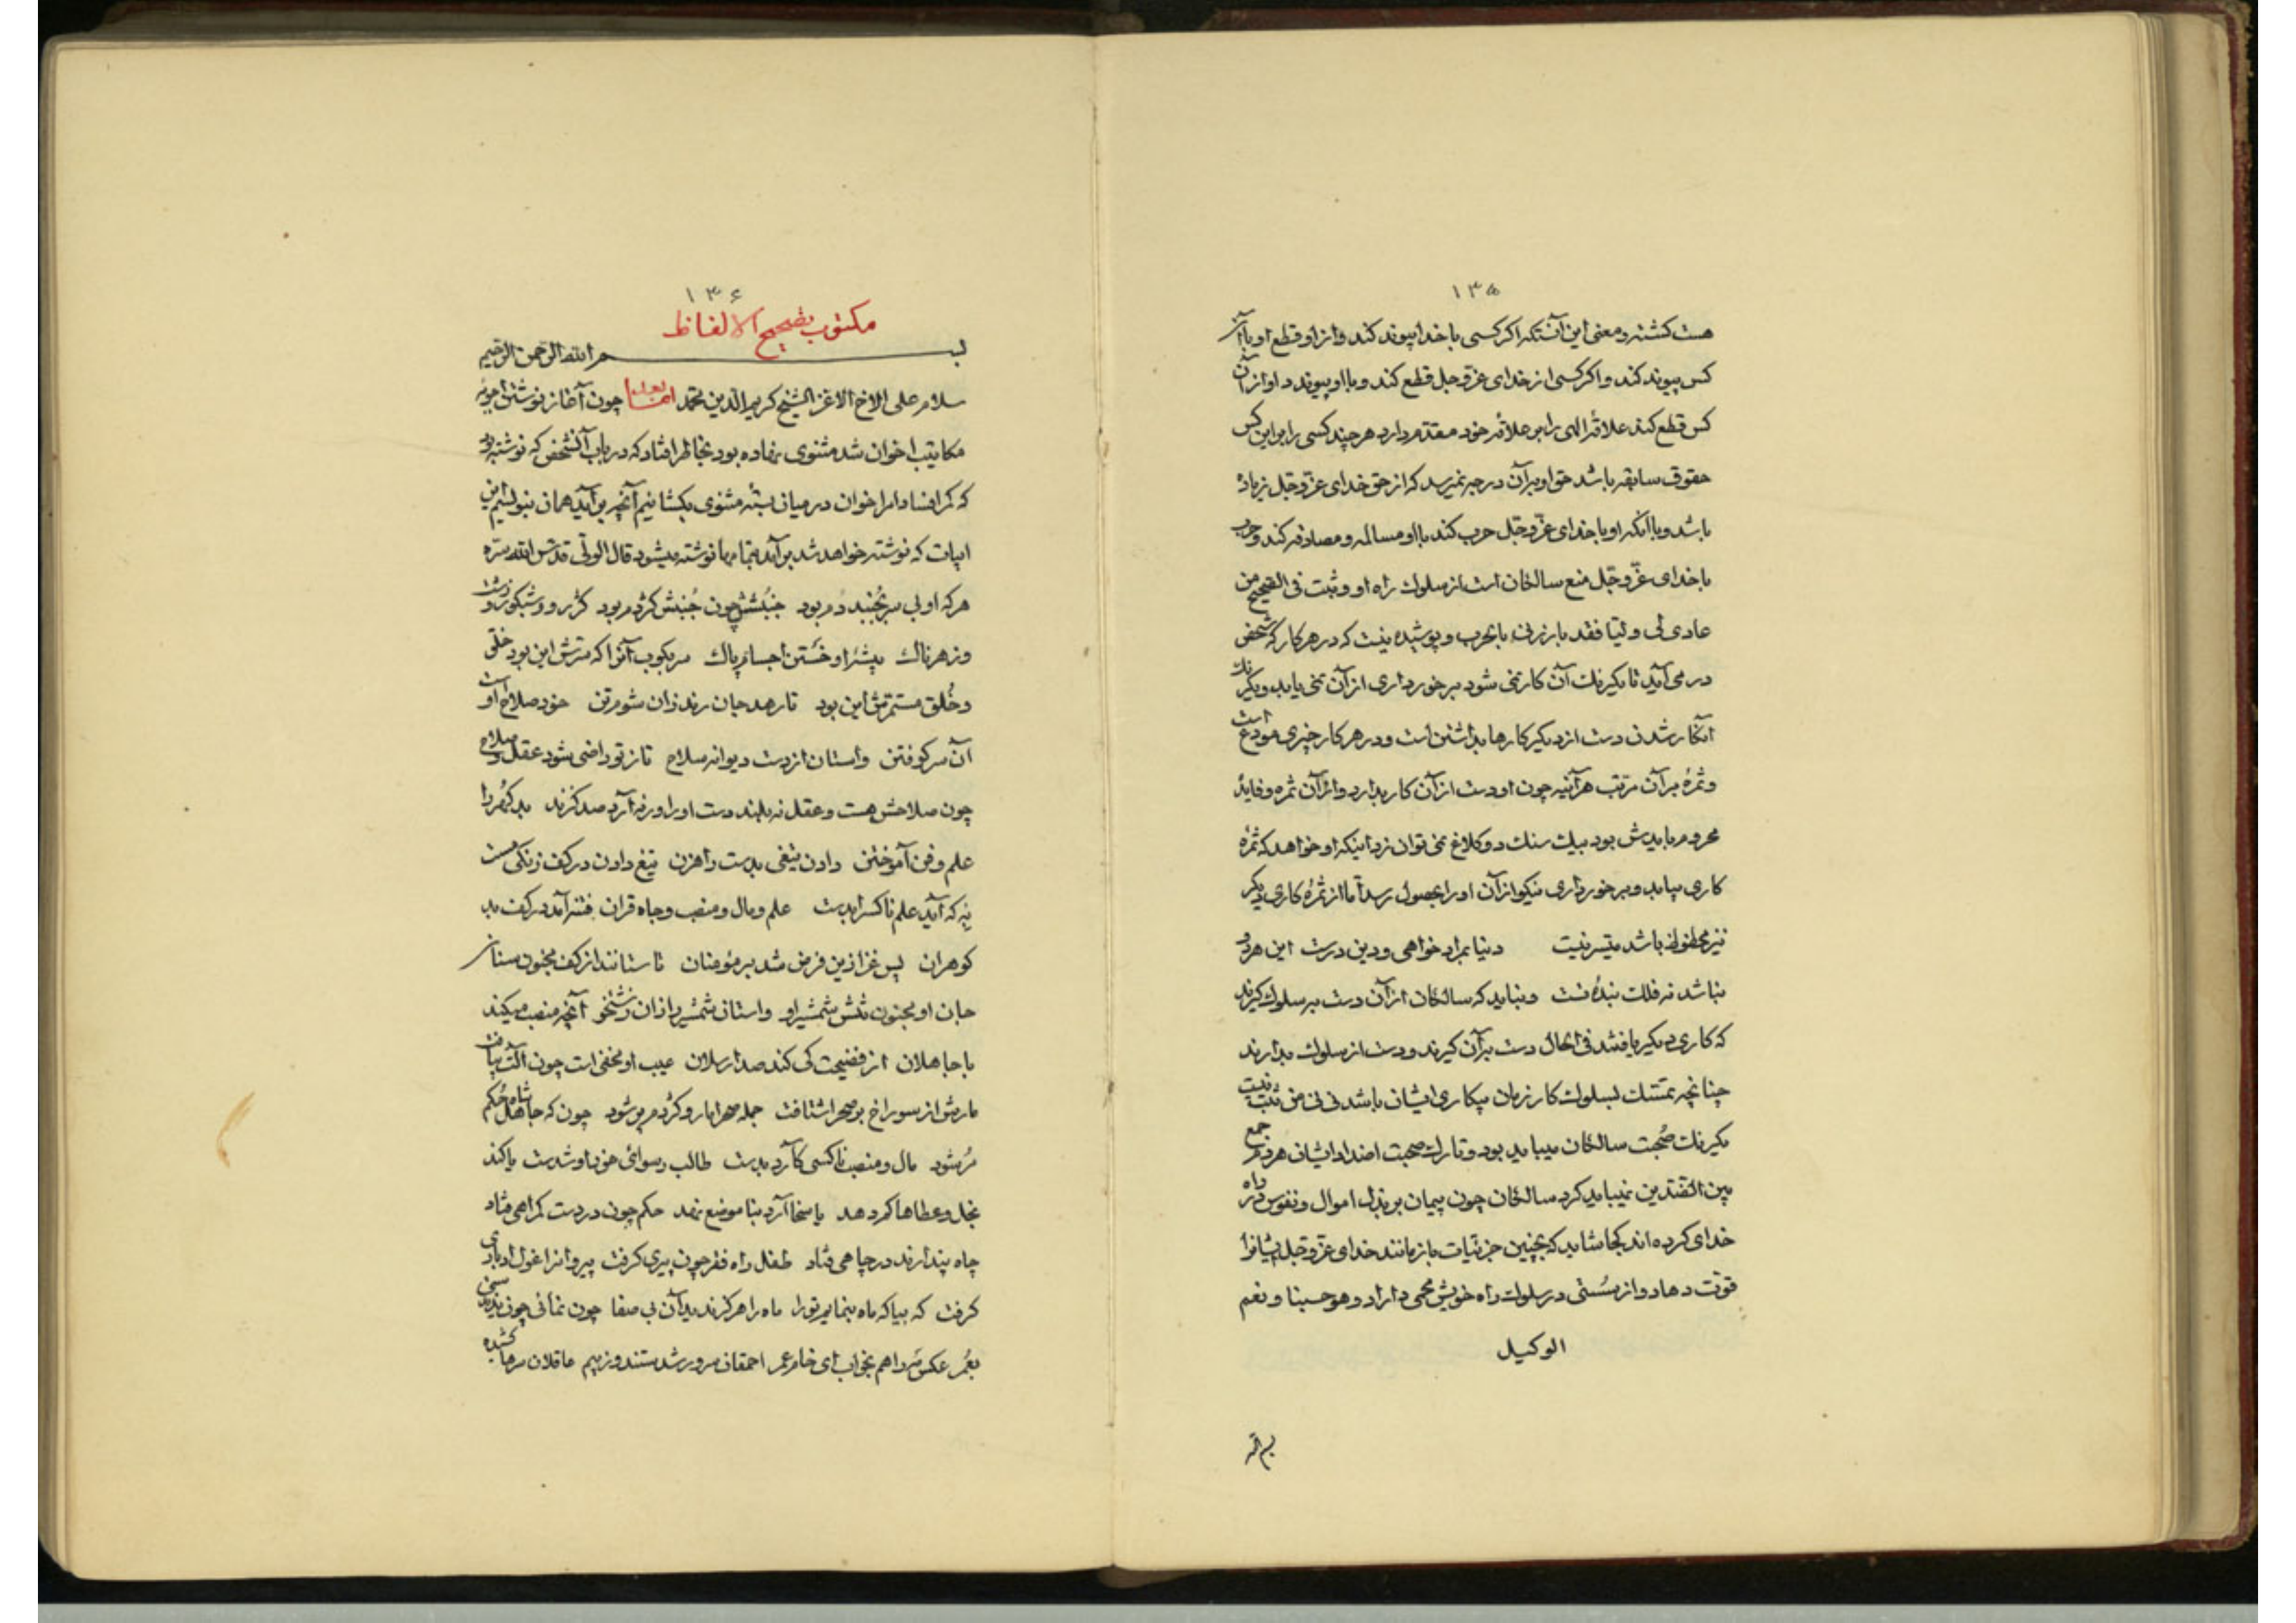 ۱۳۵
هست کشته و معنی این آنستکه اگر کسی با خدا پیوند کند و از او قطع او با آن
کس پیوند کند و اگر کسی از خدای عزوجل قطع کند و با او پیوندد او از آن
کس قطع کند علاقۀ الهی را بر علاقه خود مقدم دارد هر چند کسی را بر این کس
حقوق سابقه باشد حق او بر آن درجه نمیرسد که از حق خدای عزوجل زیاده
باشد و با آنکه او با خدای عزّوجّل حرب کند با او مسالمه و مصادقه کند و حرب
با خدای عزّوجّل منع سالکان است از سلوک راه او و ثبت فی الصحیح من
عادی لی ولیا فقد بارزنی بالحرب و پوشیده نیست که در هر کار که شخص
در می آید تا یکرنک آن کار نمی شود برخورداری از آن نمی یابد و یکرنک
آنکار شدن دست از دیگر کارها بداشتن است و در هر کار چیزی مودع است
و ثمرۀ بر آن مرتب هرآینه چون او دست از آن کار بدارد و از آن ثمره و فایدۀ
محروم بایدش بود بیک سنک دو کلاغ نمی توان زد اینکه او خواهد که ثمرۀ
کاری بیابد و برخورداری نیکو از آن او را بحصول رسد اما از ثمرۀ کاری دیگر
نیز محظوظ باشد میّسر نیست دنیا بمراد خواهی و دین درست این هر دو
نباشد نه فلک بندۀ تست و نباید که سالکان از آن دست بر سلوک گیرند
که کاری دیگر یافتند فی الحال دست بر آن گیرند و دست از سلوک بدارند
چنانچه تمسّک بسلوک کار زمان بیکاری ایشان باشد نی نی من ثبت نبت
یکرنک صُحبت سالکان میباید بود و تارک صحبت اضداد ایشان هرگز جمع
بین الضّدین نمیباید کرد سالکان چون پیمان بر بذل اموال و نفوس در راه
خدای کرده اند کجا شاید که بچنین جزئیات بازمانند خدای عزّوجّل ایشانرا
قوّت دهاد و از سُستی در سلوک راه خویش محمی داراد و هو حسبنا و نعم
الوکیل
بسم الله
۱۳۶
مکتوب بصحیح الالفاظ
بسم الله الرّحمن الرّحیم
سلام علی الاخ الاعز الشیخ کریم الدین محمّد اما بعد چون آغاز نوشتن اجوبه
مکاتیب اخوان شد مثنوی نهاده بود بخاطر افتاد که در باب آنشخص که نوشته بود
که کم افتاد امر اخوان در میان بسته مثنوی بکشائیم آنچه برآید همان بنویسیم این
ابیات که نوشته خواهد شد برآمد بتمامها نوشته میشود قال الولّی قدّس الله سرّه
هر که او بی سر بجُنبد دُم بود جنبُشش چون جُنبش کژدم بود کژرو و شبکور و زشت
و زهرناک پیشۀ او خَستن اجسام پاک سر بکوب آنرا که سرّش این بود خلق
و خُلق مستمرّش این بود تا رهد جان ریزه زان شوم تن خود صلاح اوست
آن سر کوفتن واستان از دست دیوانه سلاح تا ز تو راضی شود عقل و صلاح
چون سلاحش هست و عقل نه ببند دست او را ورنه آرد صد گزند بدگهر را
علم و فن آموختن دادن تیغی بدست راهزن تیغ دادن در کف زنگی مست
به که آید علم ناکس را بدست علم و مال و منصب و جاه و قران فتنه آمد در کف بد
گوهران پس غزا زین فرض شد بر مؤمنان تا ستانند از کف مجنون سنان
جان او مجنون تنش شمشیر او واستان شمشیر را زان زشتخو آنچه منصب میکند
با جاهلان از فضیحت کی کند صد ارسلان عیب او مخفی است چون آلت بیافت
مارش از سوراخ بر صحرا شتافت جمله صحرا مار و کژدم پر شود چون که جاهل شاه حُکم
مُر شود مال و منصب ناکسی کآرد بدست طالب رسوائی خود او شدست یا کند
بخل و عطاها کم دهد یا سخا آرد بناموضع نهد حکم چون در دست گمراهی فتاد
جاه پندارند در چاهی فتاد طفل راه فقر چون پیری گرفت پیروانرا غول ادباری
گرفت که بیا که ماه بنمایم تورا ماه را هرگز ندید آن بی صفا چون نمائی چون ندیدستی
بعُمر عکس مَه را هم بخواب ای خام عمر احمقان سرور شدستند و ز بیم عاقلان سرها کشیده